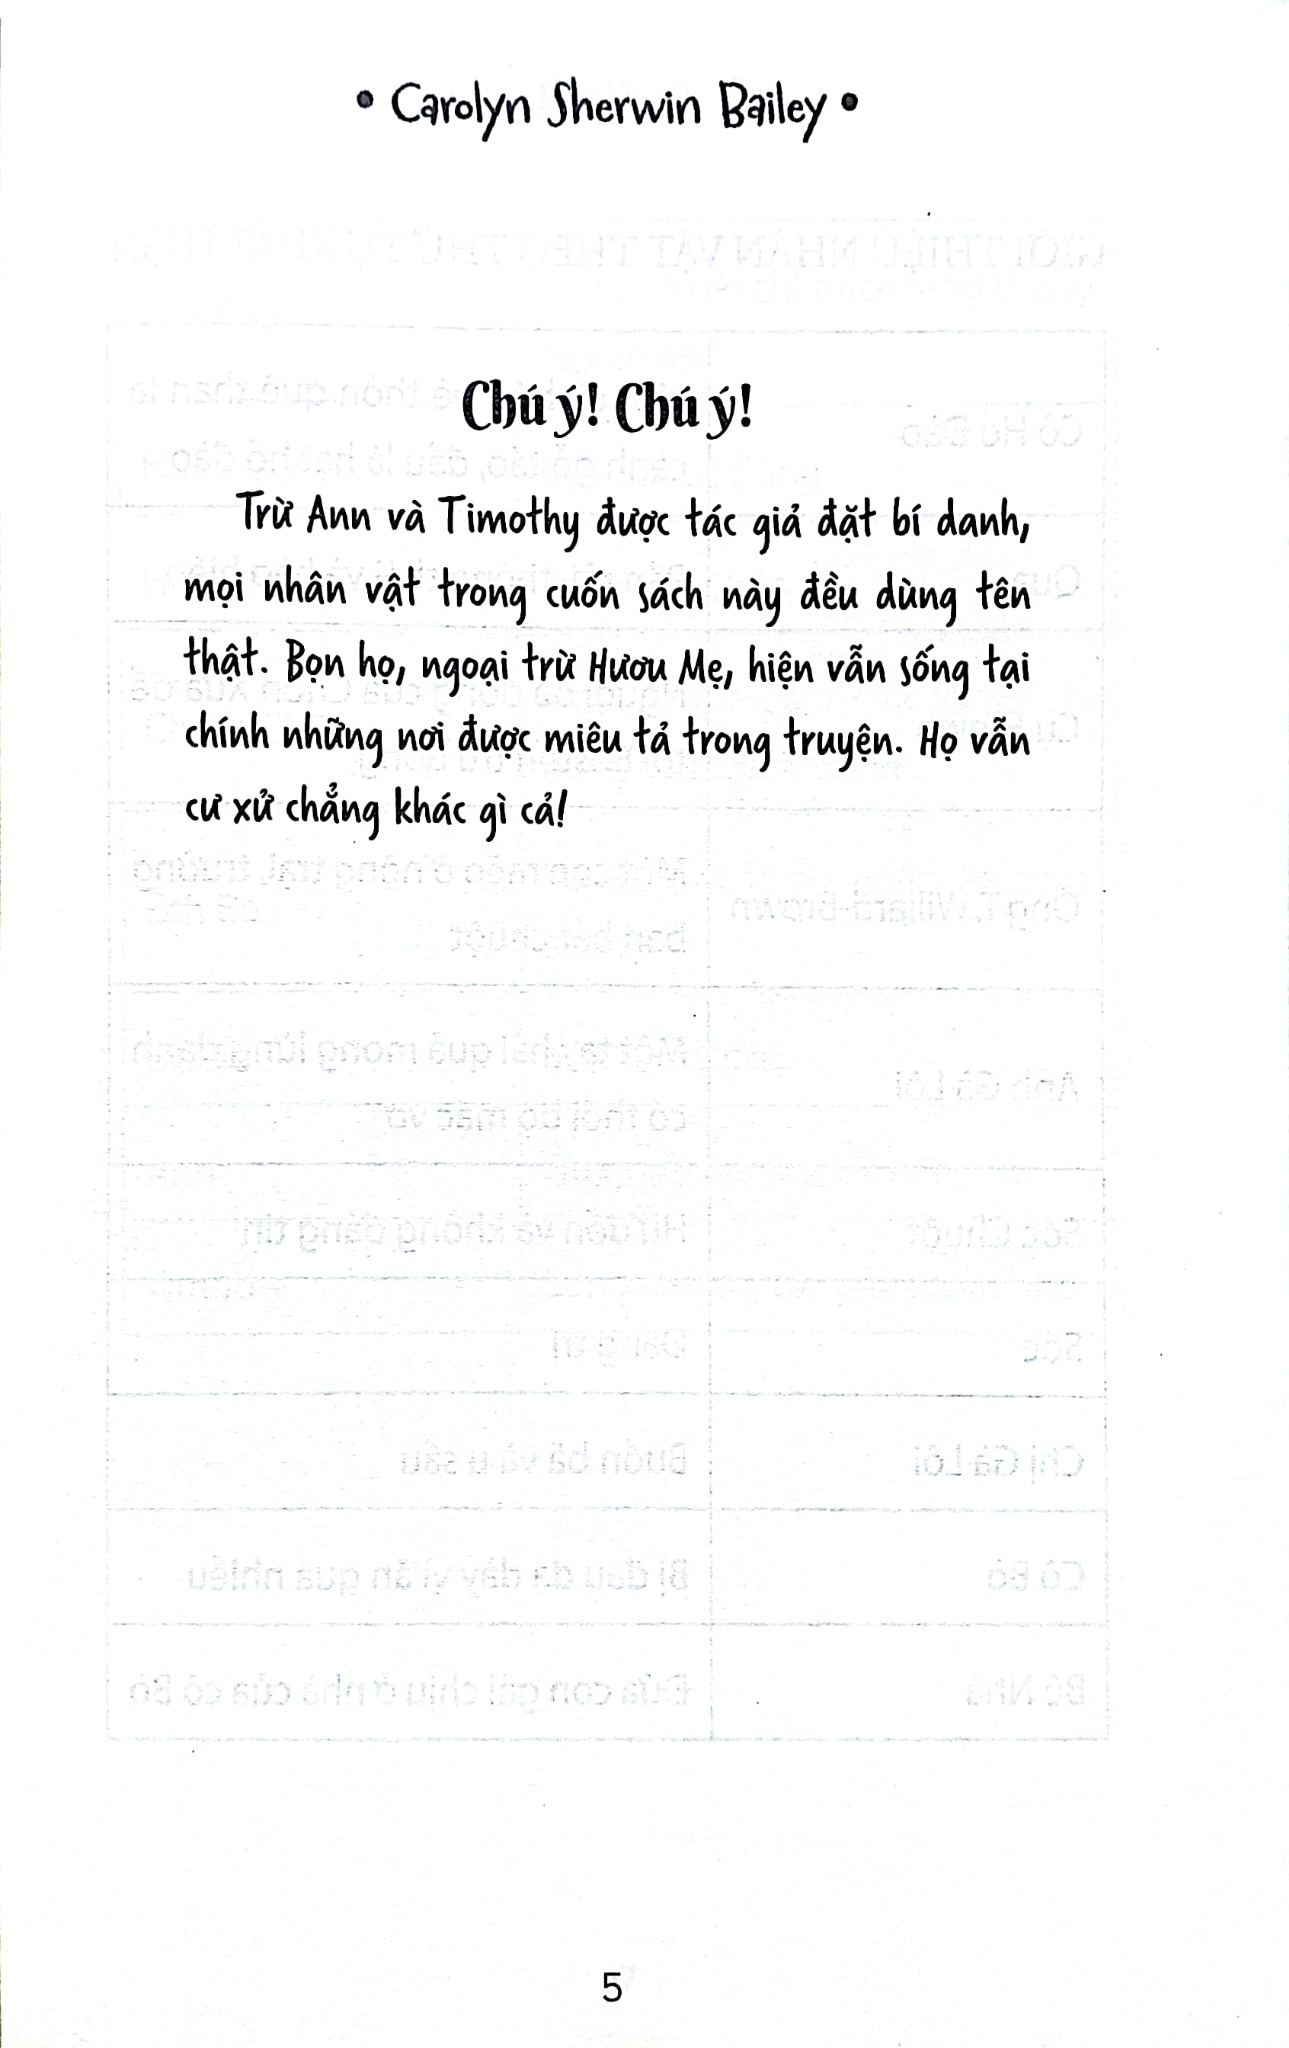 • Carolyn Sherwin Bailey •
Chú ý! Chú ý!
Trừ Ann và Timothy được tác giả đặt bí danh,
mọi nhân vật trong cuốn sách này đều dùng tên
thật. Bọn họ, ngoại trừ Hươu Mẹ, hiện vẫn sống tại
chính những nơi được miêu tả trong truyện. Họ vẫn
cư xử chẳng khác gì cả!
5